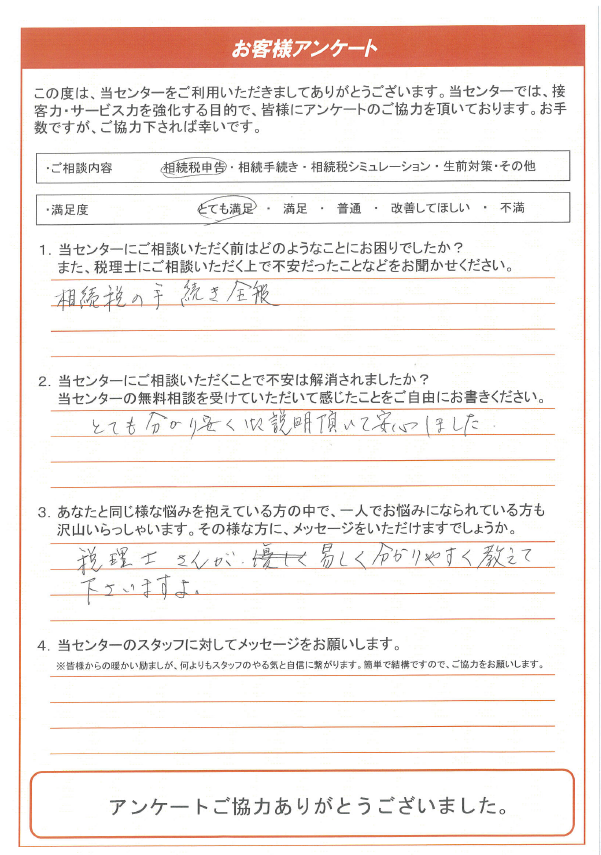 お客様アンケート
この度は、当センターをご利用いただきましてありがとうございます。当センターでは、接
客力・サービス力を強化する目的で、皆様にアンケートのご協力を頂いております。お手
数ですが、ご協力下されば幸いです。
・ご相談内容 相続税申告・相続手続き・相続税シミュレーション・生前対策・その他
・満足度 とても満足 ・ 満足 ・ 普通 ・ 改善してほしい ・ 不満
1．当センターにご相談いただく前はどのようなことにお困りでしたか？
また、税理士にご相談いただく上で不安だったことなどをお聞かせください。
相続税の手続き全般
2．当センターにご相談いただくことで不安は解消されましたか？
当センターの無料相談を受けていただいて感じたことをご自由にお書きください。
とても分かり安くご説明頂いて安心しました.
3．あなたと同じ様な悩みを抱えている方の中で、一人でお悩みになられている方も
沢山いらっしゃいます。その様な方に、メッセージをいただけますでしょうか。
税理士さんが、優しく易しく分かりやすく教えて
下さいますよ。
4．当センターのスタッフに対してメッセージをお願いします。
※皆様からの暖かい励ましが、何よりもスタッフのやる気と自信に繋がります。簡単で結構ですので、ご協力をお願いします。
アンケートご協力ありがとうございました。